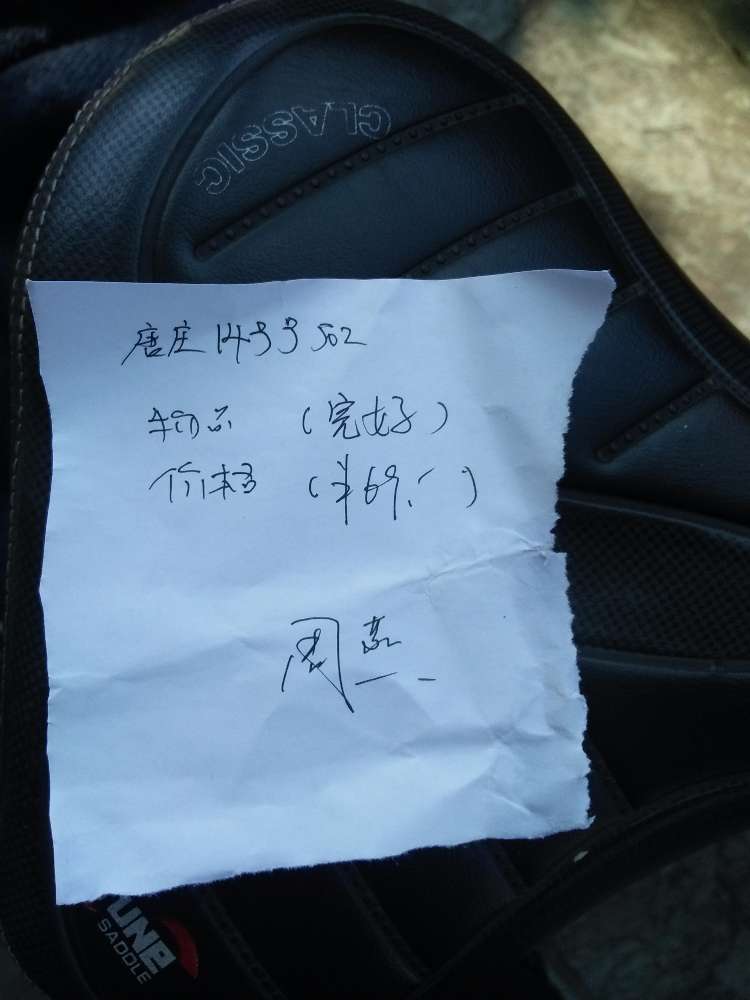 CLASSIC
唐庄14号502
物品 (完好)
价格 (¥69.)
周燕
UNE
SADDLE